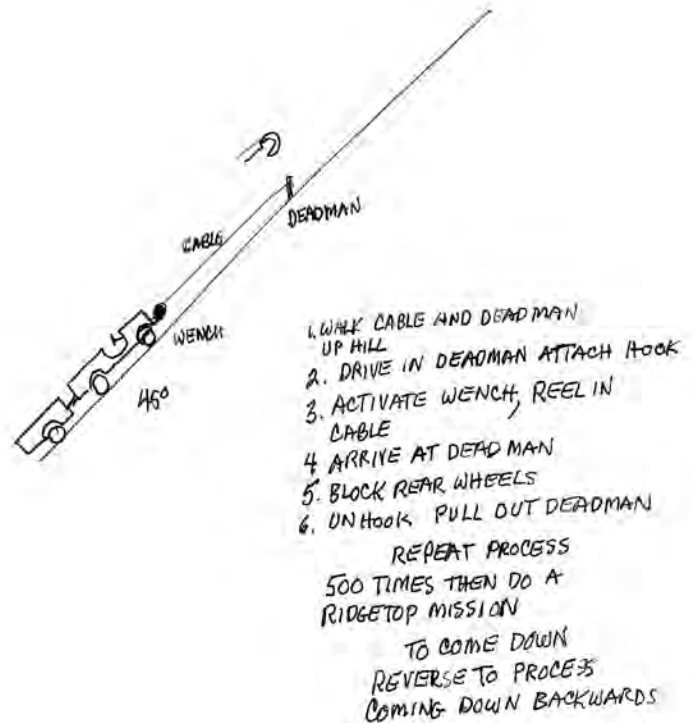 DEADMAN
CABLE
WENCH
45°
1. WALK CABLE AND DEADMAN
UP HILL
2. DRIVE IN DEADMAN ATTACH HOOK
3. ACTIVATE WENCH, REEL IN
CABLE
4 ARRIVE AT DEAD MAN
5. BLOCK REAR WHEELS
6. UNHOOK PULL OUT DEADMAN
REPEAT PROCESS
500 TIMES THEN DO A
RIDGETOP MISSION
TO COME DOWN
REVERSE TO PROCESS
COMING DOWN BACKWARDS